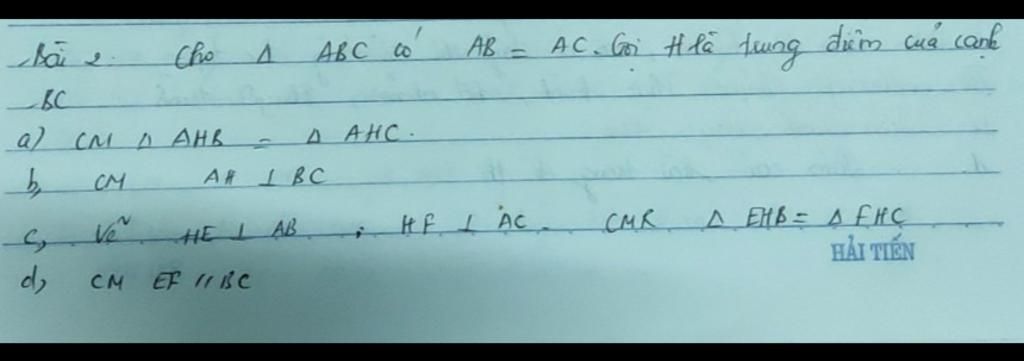 Bài 2. Cho Δ ABC có AB = AC. Gọi H là trung điểm của cạnh
BC
a) CM Δ AHB = Δ AHC.
b, CM AH ⊥ BC
c, Vẽ HE ⊥ AB ; HF ⊥ AC. CMR Δ EHB = Δ FHC
HẢI TIẾN
d, CM EF // BC